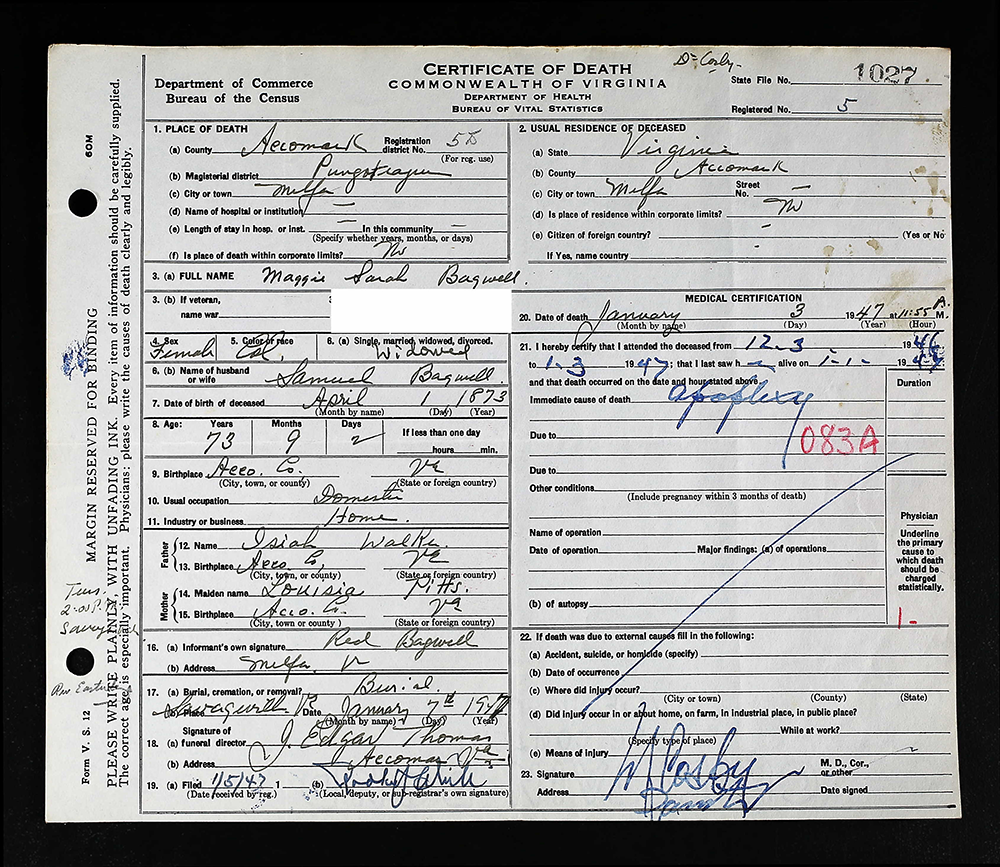 CERTIFICATE OF DEATH
Dr Cosby
Department of Commerce
Bureau of the Census
COMMONWEALTH OF VIRGINIA
DEPARTMENT OF HEALTH
BUREAU OF VITAL STATISTICS
State File No. 1027
Registered No. 5
1. PLACE OF DEATH
(a) County Accomack Registration district No.
(For reg. use)
(b) Magisterial district Pungoteague
(c) City or town Melfa
(d) Name of hospital or institution —
(e) Length of stay in hosp. or inst. — In this community —
(Specify whether years, months, or days)
(f) Is place of death within corporate limits? No
2. USUAL RESIDENCE OF DECEASED
(a) State Virginia
(b) County Accomack
(c) City or town Melfa Street No. —
(d) Is place of residence within corporate limits? No
(e) Citizen of foreign country? - (Yes or No
If Yes, name country -
3. (a) FULL NAME Maggie Sarah Bagwell.
3. (b) If veteran, name war
4. Sex Female 5. Color or race Col. 6. (a) Single, married, widowed, divorced. Widowed
6. (b) Name of husband or wife Samuel Bagwell.
7. Date of birth of deceased April 1 1873
(Month by name) (Day) (Year)
8. Age: Years Months Days If less than one day
73 9 2 hours min.
9. Birthplace Acco. Co. Va
(City, town, or county) (State or foreign country)
10. Usual occupation Domestic
11. Industry or business Home.
Father
12. Name Isiah
13. Birthplace Acco Co, Va
(City, town, or county) (State or foreign country)
Mother
14. Maiden name Louisia Pitts.
15. Birthplace Acco. Co. Va
(City, town, or county ) (State or foreign country)
16. (a) Informant's own signature Red Bagwell
(b) Address Melfa. Va
17. (a) Burial, cremation, or removal? Burial.
(b) Place Date January 7th 1947
(Month by name) (Day) (Year)
18. Signature of (a) funeral director J. Edgar Thomas
(b) Address Accomac Va
19. (a) Filed 1/5/47 1 (b)
(Date received by reg.) (Local, deputy, or sub-registrar's own signature)
MEDICAL CERTIFICATION
20. Date of death January 3 1947 at 11:55 A. M.
(Month by name) (Day) (Year) (Hour)
21. I hereby certify that I attended the deceased from 12-3 1946
to 1-3 1947; that I last saw h — alive on 1-1- 1947
and that death occurred on the date and hour stated above.
Duration
Immediate cause of death Apoplexy
083A
Due to
Due to
Other conditions
(Include pregnancy within 3 months of death)
Name of operation
Date of operation Major findings: (a) of operations
(b) of autopsy
Physician
Underline the primary cause to which death should be charged statistically.
1-
22. If death was due to external causes fill in the following:
(a) Accident, suicide, or homicide (specify)
(b) Date of occurrence
(c) Where did injury occur?
(City or town) (County) (State)
(d) Did injury occur in or about home, on farm, in industrial place, in public place?
While at work?
(Specify type of place)
(e) Means of injury
23. Signature Cosby M. D., Cor., or other
Address Date signed
60M
MARGIN RESERVED FOR BINDING
PLEASE WRITE PLAINLY WITH UNFADING INK. Every item of information should be carefully supplied.
The correct age is especially important. Physicians: please write the causes of death clearly and legibly.
Form V. S. 12
Tues.